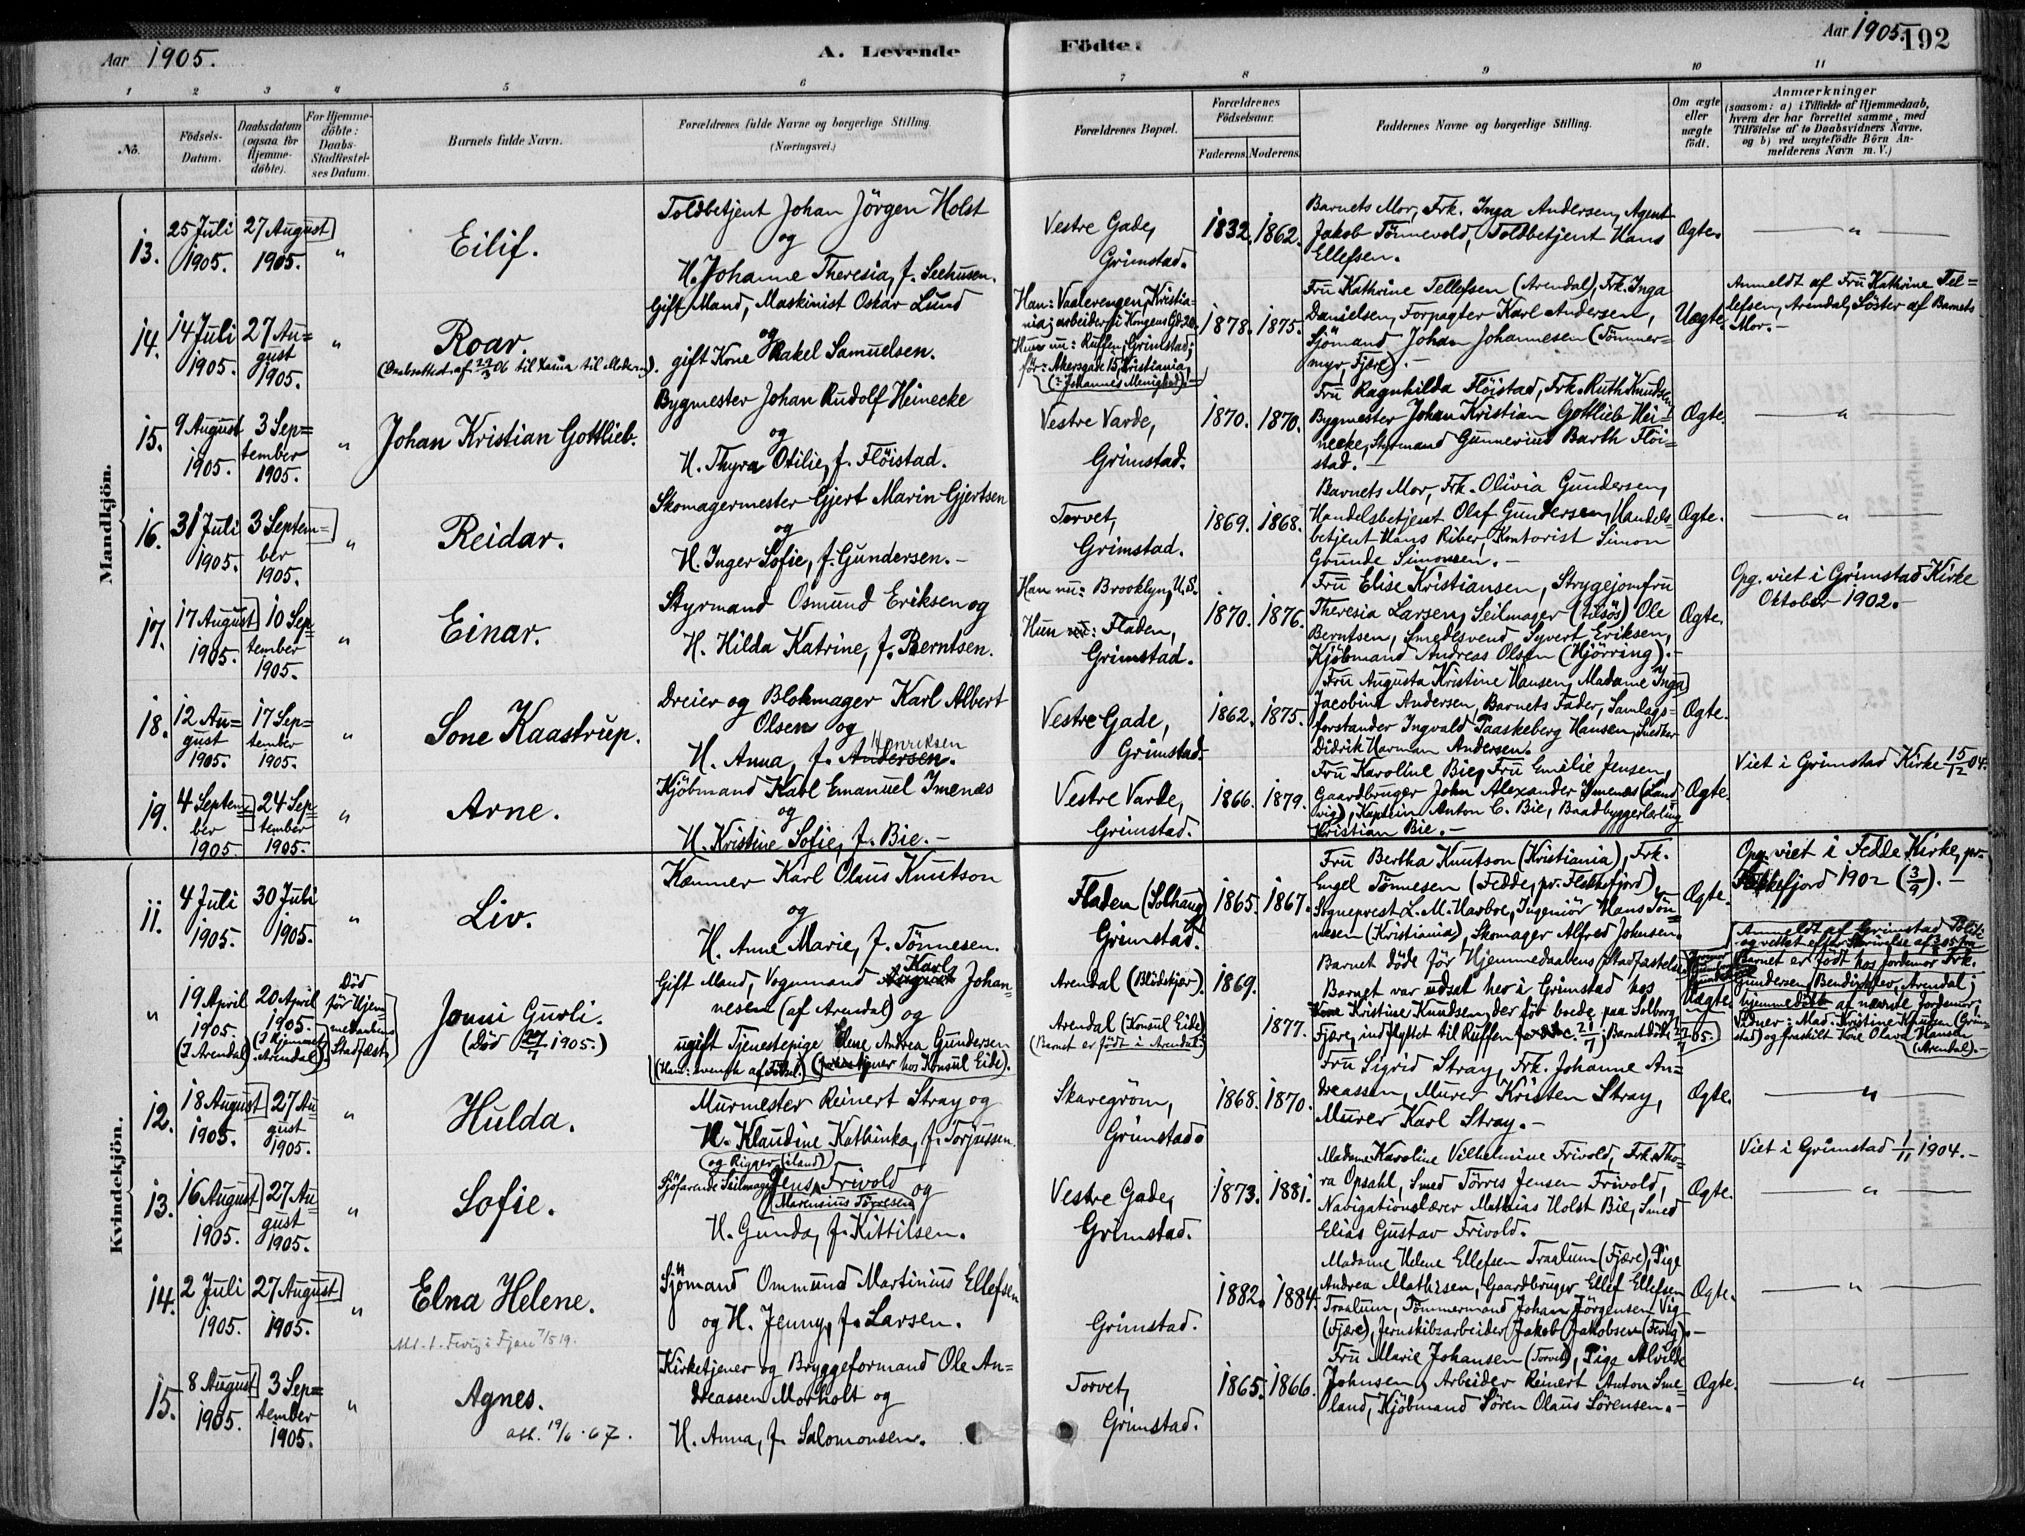 Aar 1905.
A. Levende Födte.
Aar 1905.
192
1 2 3 4 5 6 7 8 9 10 11
No.
Födsels-Datum.
Daabsdatum (ogsaa for Hjemmedöbte).
For Hjemmedöbte: Daabs-Stadfæstelses Datum.
Barnets fulde Navn.
Forældrenes fulde Navne og borgerlige Stilling. (Næringsvei.)
Forældrenes Bopæl.
Forældrenes Födselsaar.
Faderens. Moderens.
Faddernes Navne og borgerlige Stilling.
Om ægte eller uægte födt.
Anmærkninger
(saasom: a) i Tilfælde af Hjemmedaab, hvem der har forrettet samme, med Tilföielse af to Daabsvidners Navne, og b) ved uægtefödte Börn Anmelderens Navn m. V.)
Mandkjön.
13.
25 Juli 1905.
27 August 1905.
"
Eilif.
Toldbetjent Johan Jörgen Holst
og
H. Johanne Theresia, f. Seehusen.
Vestre Gade,
Grimstad.
1832. 1862.
Barnets Mor, Frk. Inga Andersen, Agent
Jakob Tönnevold, Toldbetjent Hans
Ellefsen.
Ægte.
"
14.
14 Juli 1905.
27 August 1905.
"
Roar.
(Daabsattest af 22/3 06 til Moderen).
Gift Mand, Maskinist Oskar Lund
og
gift Kone Rakel Samuelsen.
Han: Vaalerengen, Kristia-
nia; arbeider i Kongens Gd. 20.
Hun nu: Ruffen, Grimstad;
för: Akersgade 15, Kristiania,
(: Johannes Menighed). -
1878. 1875.
Fru Kathrine Tellefsen (Arendal), Frk. Inga
Danielsen, Forpagter Karl Andersen,
Sjömand Johan Johannesen (Tömmer-
myr, Fjære). -
Uægte
Anmeldt af Fru Kathrine Tel=
lefsen, Arendal, Söster af Barnets
Mor. -
15.
9 August 1905.
3 Sep=
tember 1905.
"
Johan Kristian Gottlieb.
Bygmester Johan Rudolf Heinecke
og
H. Thyra Otilie, f. Flöistad.
Vestre Varde,
Grimstad.
1870. 1870.
Fru Ragnhilda Flöistad, Frk. Ruth Knudsen,
Bygmester Johan Kristian Gottlieb Hei-
necke, Styrmand Gunnerius Barth Flöi-
stad. -
Ægte.
"
16.
31 Juli 1905.
3 Septem=
ber 1905.
"
Reidar.
Skomagermester Gjert Marin Gjertsen
og
H. Inger Sofie, f. Gundersen. -
Torvet,
Grimstad.
1869. 1868.
Barnets Mor, Frk. Olivia Gundersen,
Handelsbetjent Olaf Gundersen, Handels-
betjent Hans Riber, Kontorist Simon
Grunde Simonsen. -
Ægte.
"
17.
17 August 1905.
10 Sep=
tember 1905.
"
Einar.
Styrmand Osmund Eriksen og
H. Hilda Katrine, f. Berntsen.
Han nu: Brooklyn, U.S.
Hun nu: Fladen,
Grimstad.
1870. 1876.
Fru Elise Kristiansen, Strygejomfru
Theresia Larsen, Seilmager (tilsös) Ole
Berntsen, Smedesvend Syvert Eriksen,
Kjöbmand Andreas Olsen (Hjörring). -
Ægte.
Opg. viet i Grimstad Kirke
Oktober 1902. -
18.
12 Au=
gust 1905.
17 Sep=
tember 1905.
"
Sone Kaastrup.
Dreier og Blokmager Karl Albert
Olsen og
Henriksen
H. Anna, f. Andersen.
Vestre Gade,
Grimstad.
1862. 1875.
Fru Augusta Kristine Hansen, Madame Inga
Jacobine Andersen, Barnets Fader, Samlags-
forstander Ingvald Paaskeberg Hansen, Snedker
Didrik Herman Andersen.
Ægte.
19.
4 Septem=
ber 1905.
24 Sep=
tember 1905.
"
Arne.
Kjöbmand Karl Emanuel Imenæs
og
H. Kristine Sofie, f. Bie. -
Vestre Varde,
Grimstad.
1866. 1879.
Fru Karoline Bie, Fru Emilie Jensen,
Gaardbruger John Alexander Ymenæs (Land
vig), Kaptein Anton C. Bie, Baadbyggerlærling
Kristian Bie. -
Ægte.
Viet i Grimstad Kirke 15/12 04.
Kvindekjön.
11.
4 Juli 1905.
30 Juli 1905.
"
Liv.
Kæmner Karl Olaus Knutson
og
H. Anne Marie, f. Tönnesen.
Fladen (Solhaug)
Grimstad.
1865. 1867.
Fru Bertha Knutson (Kristiania), Frk.
Engel Tönnesen (Fedde, pr. Flekkefjord),
Sogneprest L. M. Harboe, Ingeniör Hans Tön-
nesen (Kristiania), Skomager Alfred Johnsen.
Ægte.
Opg. viet i Fedde Kirke, pr.
Flekkefjord 1902 (3/9). -
"
19 April 1905.
(I Arendal)
20 April 1905.
(I Hjemmet, Arendal)
Död
för Hjem-
medaabens
Stadfæst.
Jonni Gurli.
(Död 27/7 1905.)
Karl
Gift Mand, Vognmand August Johan-
nesen (af Arendal) og
ugift Tjenestepige Elene Andrea Gundersen
(Han: svensk af Födsel.) (tjener hos Konsul Eide).
Arendal (Blödekjær).
Arendal (Konsul Eide)
(Barnet er födt i Arendal.)
1869.
1877.
Barnet döde för Hjemmedaabens Stadfæstelse
Barnet var udsat her i Grimstad hos
Kone Kristine Knudsen, der för boede paa Solborg,
Fjære, indflyttet til Ruffen 21/7; Barnet döde 27/7 05.
Uægte
Anmeldt af Grimstad Politi
Barnet er födt hos Jordemor Frk.
Gundersen, Bendiksklev, Arendal;
hjemmedöbt af nævnte Jordemor;
Vidner: Mad. Kristine Knudsen (Grim
stad) og fraskilt Kone Olava Hansen
(Arendal). -
12.
18 August 1905.
27 Au=
gust 1905.
"
Hulda.
Murmester Reinert Stray og
H. Klaudine Kathinka, f. Torjussen.
Skaregröm,
Grimstad.
1868. 1870.
Fru Sigrid Stray, Frk. Johanne An-
dreassen, Murer Kristen Stray,
Murer Karl Stray. -
Ægte.
"
13.
16 August 1905.
27 Au=
gust 1905.
"
Sofie.
og Rigger (iland)
Sjöfarende Seilmager Jens Frivold
Marensius Törresen og
H. Gunda, f. Kittilsen.
Vestre Gade,
Grimstad.
1873. 1881.
Madame Karoline Vilhelmine Frivold, Frk. Tho-
ra Opsahl, Smed Törres Jensen Frivold,
Navigationslærer Mathias Holst Bie, Smed
Elias Gustav Frivold.
Ægte.
Viet i Grimstad 1/11 1904. -
"
14.
2 Juli 1905.
27 August 1905.
"
Elna Helene.
Sjömand Ommund Martinius Ellefsen
og H. Jenny, f. Larsen.
Grimstad.
1882. 1884.
Madame Helene Ellefsen Traalum (Fjære), Pige
Andrea Mathisen, Gaardbruger Ellef Ellefsen
Traalum, Tömmermand Johan Jörgensen Vig
(Fjære), Jernskibsarbeider Jakob Jakobsen (Fevig). -
Ægte.
"
15.
8 August 1905.
3 Sep=
tember 1905.
"
Agnes.
att. 19/6 - 67.
Kirketjener og Bryggeformand Ole An=
dreassen Morholt og
H. Anna, f. Salomonsen.
Torvet,
Grimstad.
1865. 1866.
Fru Marie Johansen (Torvet), Pige Alvilde
Johnsen, Arbeider Reinert Anton Sme-
land, Kjöbmand Sören Olaus Sörensen. -
Ægte.
"